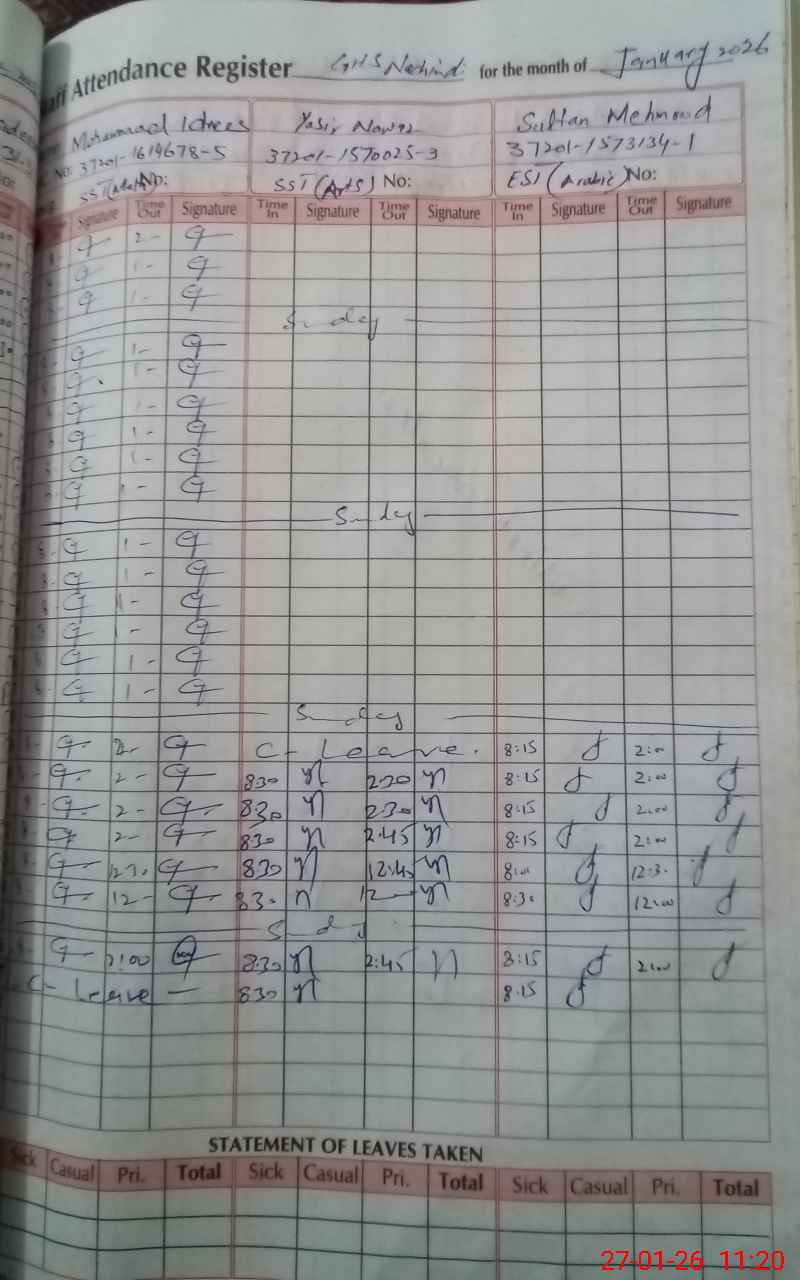 Staff Attendance Register GHS Nathind for the month of January 2026
Mohammad Idrees Yasir Nawaz Sultan Mehmood
No: 37201-1619678-5 37201-1570025-3 37201-1573134-1
SST No: SST (Arts) No: EST (Arabic) No:
Signature Time Out Signature Time In Signature Time Out Signature Time In Signature Time Out Signature
2-
1-
1-
Sunday
1-
1-
1-
1-
1-
1-
Sunday
1-
1-
1-
1-
1-
1-
Sunday
2- C- Leave. 8:15 2:00
2- 830 220 8:15 2:00
2- 830 230 8:15 2:00
2- 830 2:45 8:15 2:00
123. 830 12:45 8:00 12:3.
12- 830 12 8:30 12:00
Sunday
2:00 830 2:45 8:15 2:00
C- Leave - 830 8:15
STATEMENT OF LEAVES TAKEN
Sick Casual Pri. Total Sick Casual Pri. Total Sick Casual Pri. Total
27-01-26 11:20